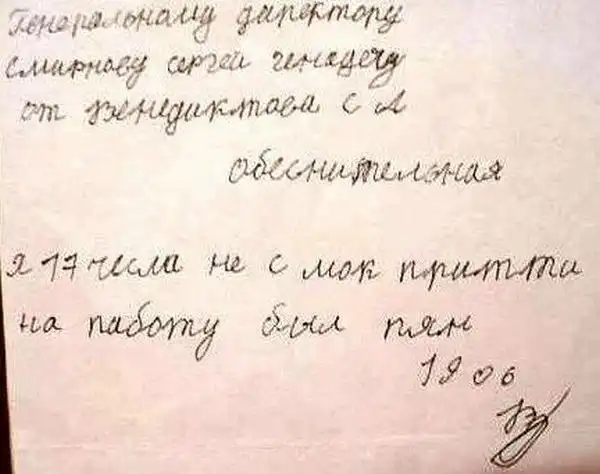 Генеральному директору
смирнову сергей генадечу
от Венедиктова С А
обеснительная
я 17 чесла не с мок притти
на работу был пян
19 06